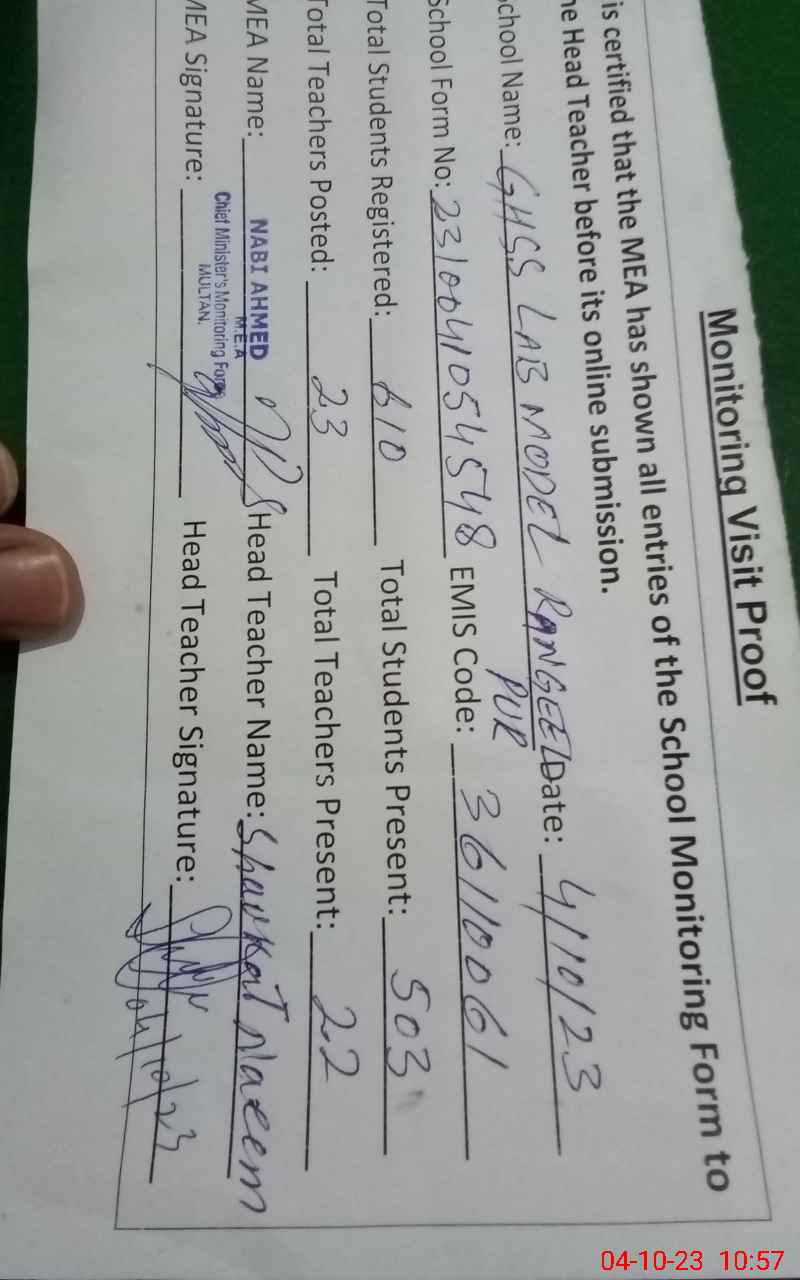 Monitoring Visit Proof
is certified that the MEA has shown all entries of the School Monitoring Form to
he Head Teacher before its online submission.
chool Name: GHSS LAB MODEL RANGEEL Date: 4/10/23
PUR
School Form No: 2310041054548 EMIS Code: 36110061
Total Students Registered: 610 Total Students Present: 503
Total Teachers Posted: 23 Total Teachers Present: 22
MEA Name: NABI AHMED Head Teacher Name: Shaukat Naeem
M.E.A
Chief Minister's Monitoring Force
MULTAN.
MEA Signature: Head Teacher Signature:
04/10/23
04-10-23 10:57